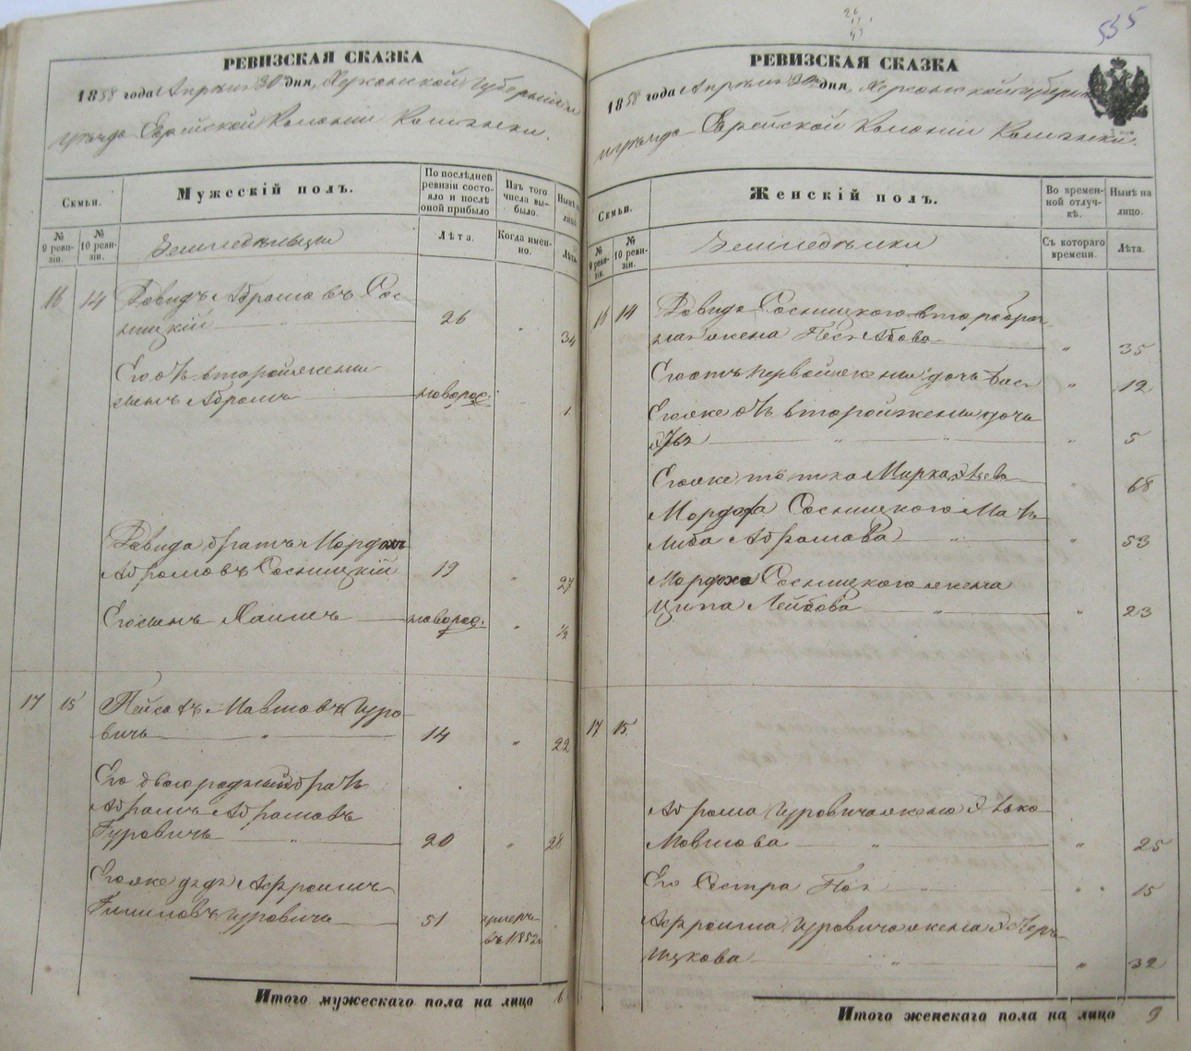 РЕВИЗСКАЯ СКАЗКА
1858 года Апреля 30 дня, Херсонской Губернии
уезда Еврейской Колонии
Семьи.
Мужескій полъ.
По послѣдней ревизіи состояло и послѣ оной прибыло
Изъ того числа выбыло.
Нынѣ на лицо.
№ 9 ревизіи.
№ 10 ревизіи.
Земледѣльцы
Лѣта.
Когда именно.
Лѣта.
16 14 Давидъ Абрамовъ Сос
ницкій 26 " 34
Его отъ второй жены
сынъ Абрамъ новорож. 1
Давида братъ Мордох
Абрамовъ Сосницкій 19 " 27
Его сынъ Хаимъ новорож. " ½
17 15 Мавшовъ Гуро
вичь " 14 " 22
Его двоюродный братъ
Абрамъ Абрамовъ
Гуровичь " 20 " 28
Его же дядя
Гуровичь 51 умеръ
въ 1852
Итого мужескаго пола на лицо 6
555
РЕВИЗСКАЯ СКАЗКА
1858 года Апреля 30 дня, Херсонской губернии
уезда Еврейской Колонии
Семьи.
Женскій полъ.
Во временной отлучкѣ.
Нынѣ на лицо.
№ 9 ревизіи.
№ 10 ревизіи.
Съ котораго времени.
Лѣта.
16 14 Давида Сосницкого второбрач
ная жена Абова " 35
Его отъ первой жены дочь " 12
Его же отъ второй жены дочь
" " " 5
Его же тётка Мирка 68
Мордоха Сосницкого мать
Либа Абрамова " " 53
Мордоха Сосницкого жена
Ципа Лейбова " " 23
17 15
Абрама Гуровича жена
Мовшова " " 25
Его Сестра " " 15
Гуровича жена
Ицкова " " 32
Итого женскаго пола на лицо 9